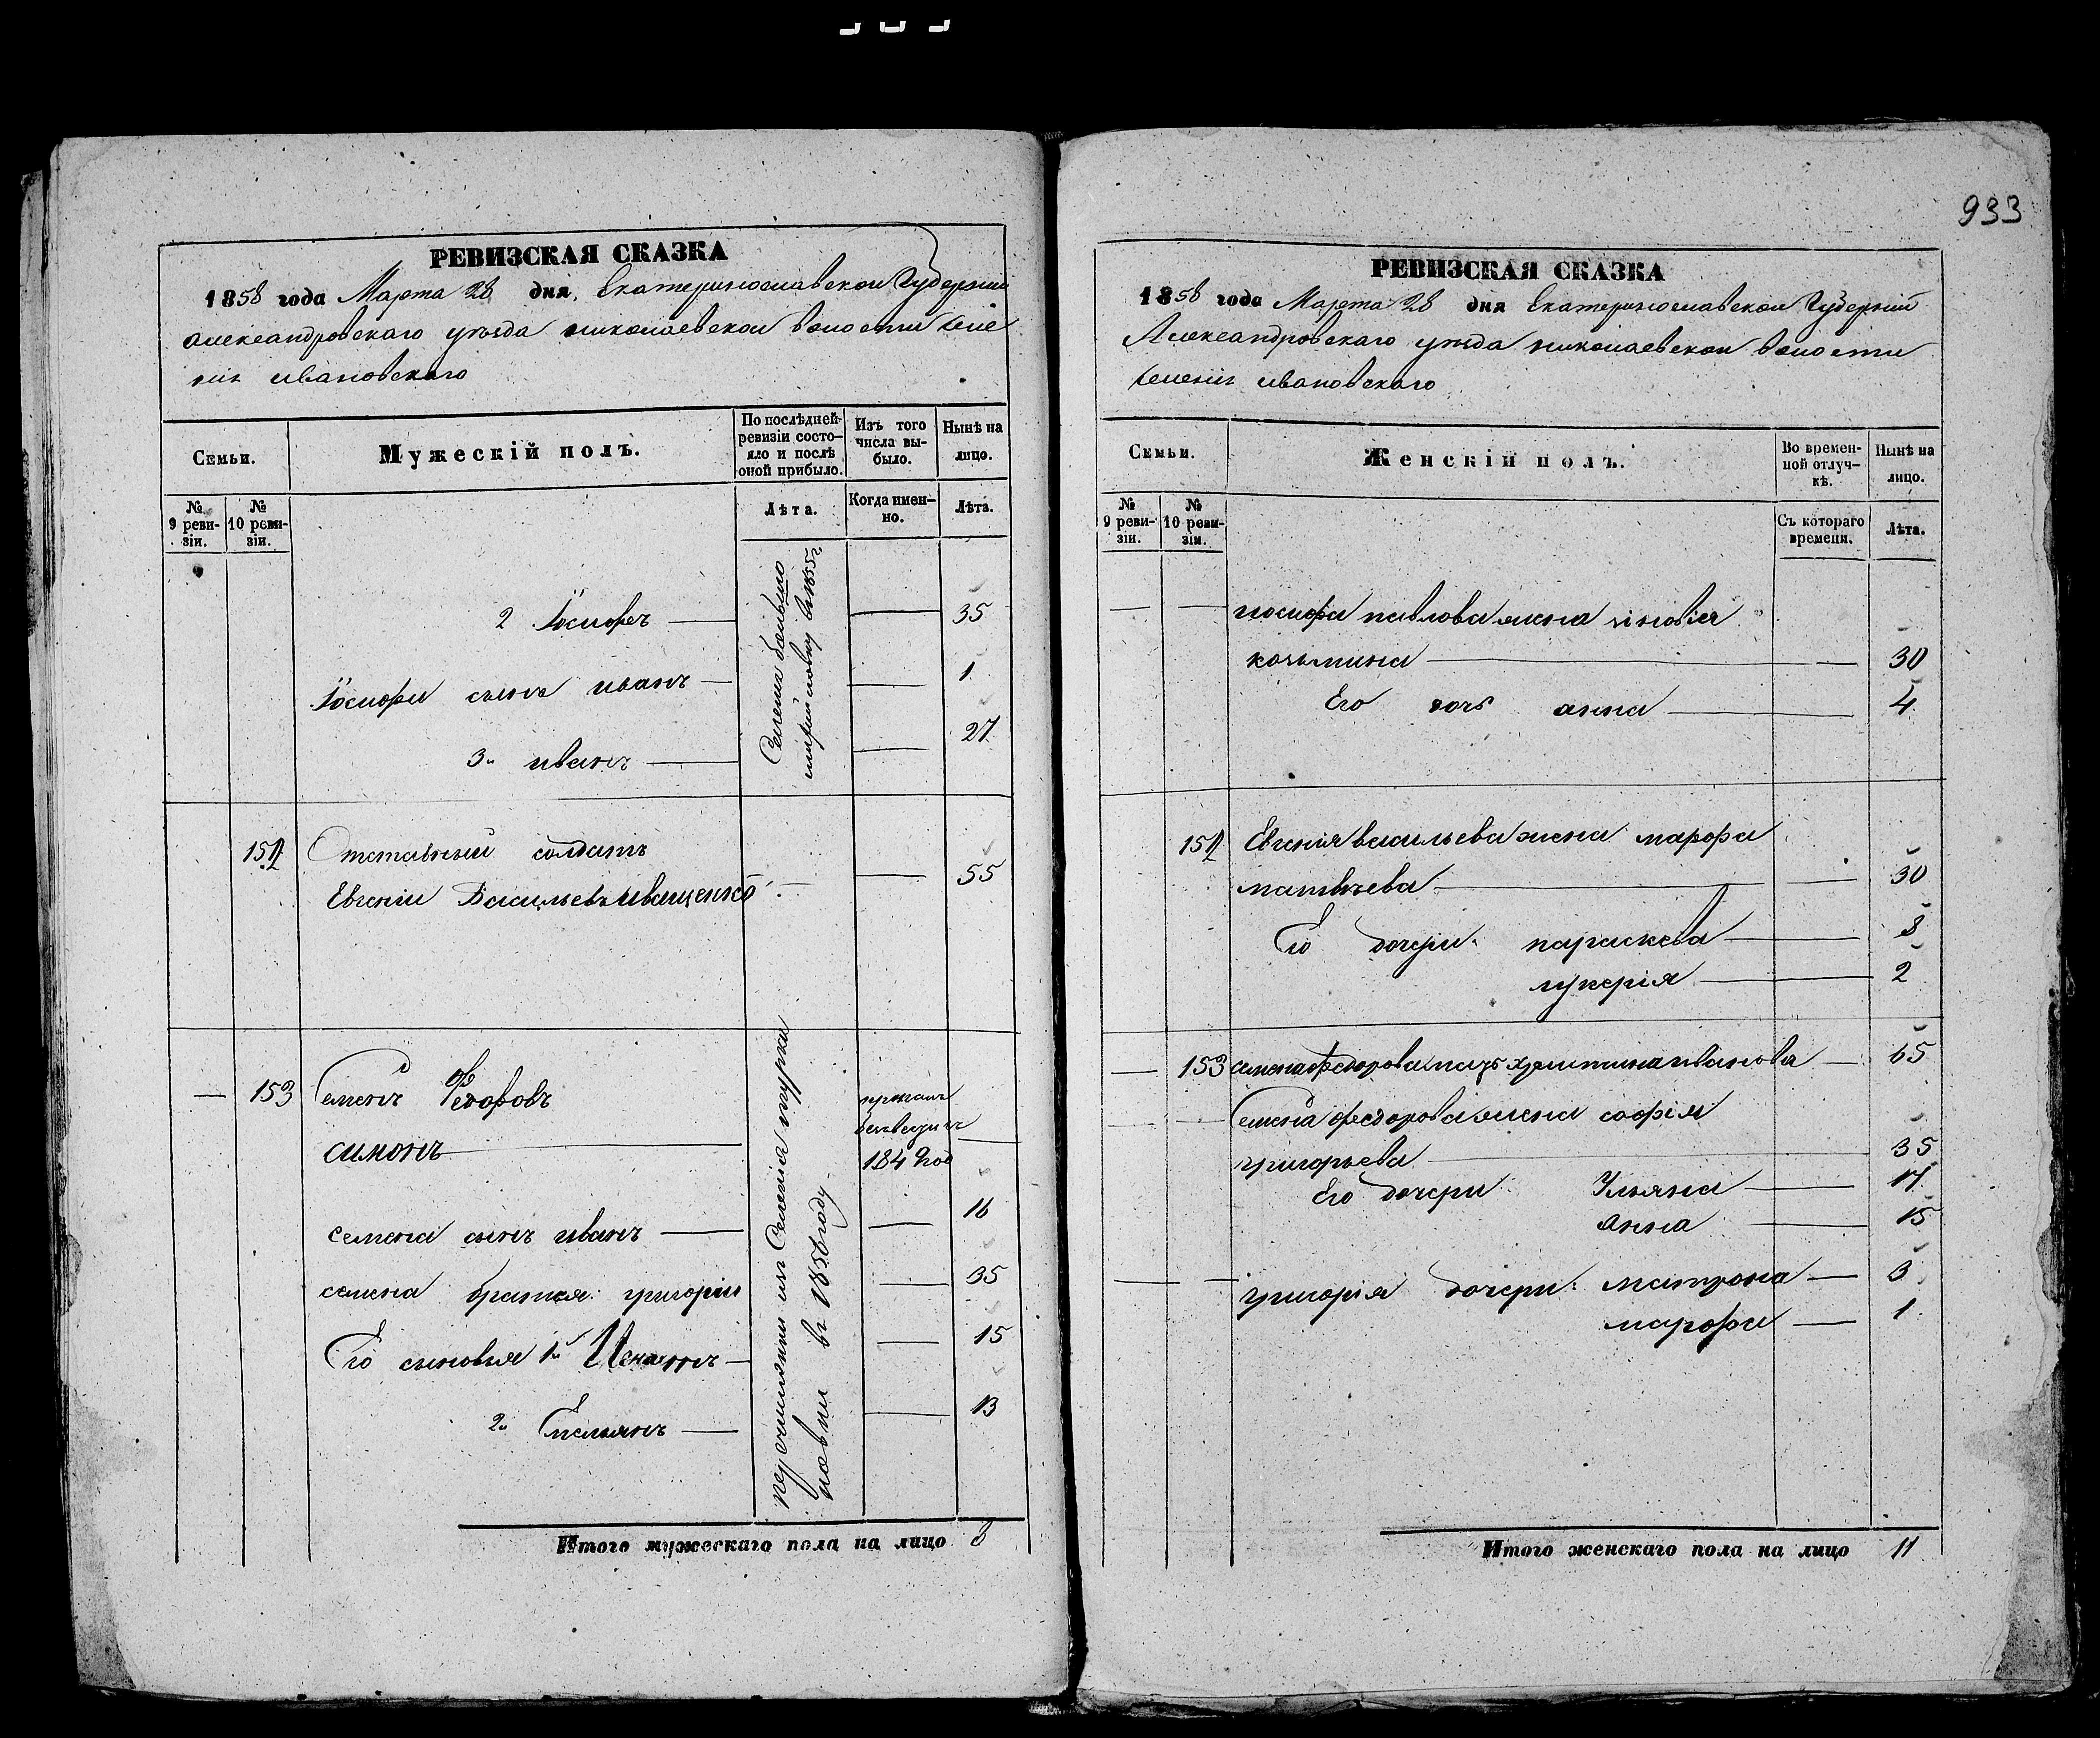 933
РЕВИЗСКАЯ СКАЗКА
1858 года Марта 28 дня, Екатеринославской Губернии
александровскаго уезда николаевской волости селе
нія ивановскаго
Семьи.
Мужескій полъ.
По послѣдней
ревизіи состо-
яло и послѣ
оной прибыло.
Изъ того
числа вы-
было.
Нынѣ на
лицо.
№
9 реви-
зіи.
№
10 реви-
зіи.
Лѣта.
Когда имен-
но.
Лѣта.
2 Іосифъ 35
Іосифа сынъ иванъ 1
3й иванъ 27
152 Отставный солдатъ
Евгеній Васильевъ иващенко 55
153 Семенъ Федоровъ
симонъ
пропалъ
безвести
184 год
семена сынъ иванъ 16
семена братья григорій 35
Его сыновья 1й 15
2й Емельянъ 13
перечислены изъ Селенія
въ 1856 году
Итого мужескаго пола на лицо 8
РЕВИЗСКАЯ СКАЗКА
1858 года Марта 28 дня Екатеринославской Губерній
Александровскаго уезда николаевской волости
селенія ивановскаго
Семьи.
Женскій полъ.
Во времен-
ной отлуч-
кѣ.
Нынѣ на
лицо.
№
9 реви-
зіи.
№
10 реви-
зіи.
Съ котораго
времени.
Лѣта.
иосифа павлова жена зіновія
козьмина 30
Его дочь анна 4
152 Евгенія васильева жена марфа
матвѣева 30
Его дочери параскева 8
лукерія 2
153 семена федорова мать христина иванова 65
Семена федорова жена софія
григорьева 35
Его дочери Ульяна 17
анна 15
григорія дочери матрона 3
марфа 1
Итого женскаго пола на лицо 11